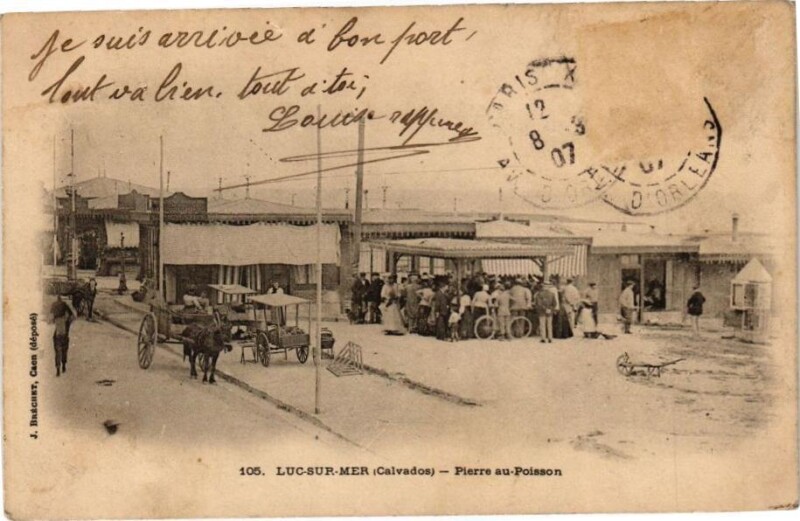 Je suis arrivée à bon port,
tout va bien. tout à toi,
Louise
PARIS X
12
8
07
AV. D'ORLEANS
07
AV. D'ORLEANS
J. BRÉCHET, Caen (déposé)
105. LUC-SUR-MER (Calvados) — Pierre au-Poisson